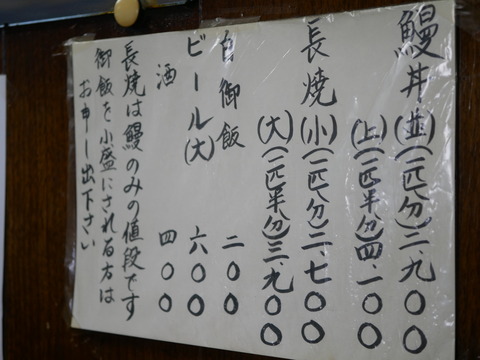 鰻丼(並)(一匹分)二、九〇〇
(上)(一匹半分)四、一〇〇
長焼(小)(一匹分)二、七〇〇
(大)(一匹半分)三、九〇〇
白御飯 二〇〇
ビール(大) 六〇〇
酒 四〇〇
長焼は鰻のみの値段です
御飯を小盛にされる方は
お申し出下さい